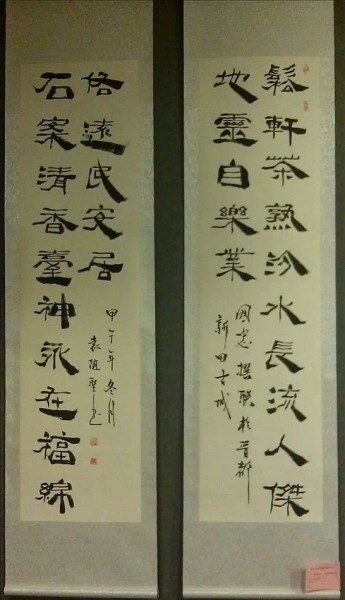 鬆軒茶熟汾水長流人傑
地靈自樂業
國忠撰聯於晉都
新田古城
石案清香臺神永在福綿
遠民安居
甲午年冬月